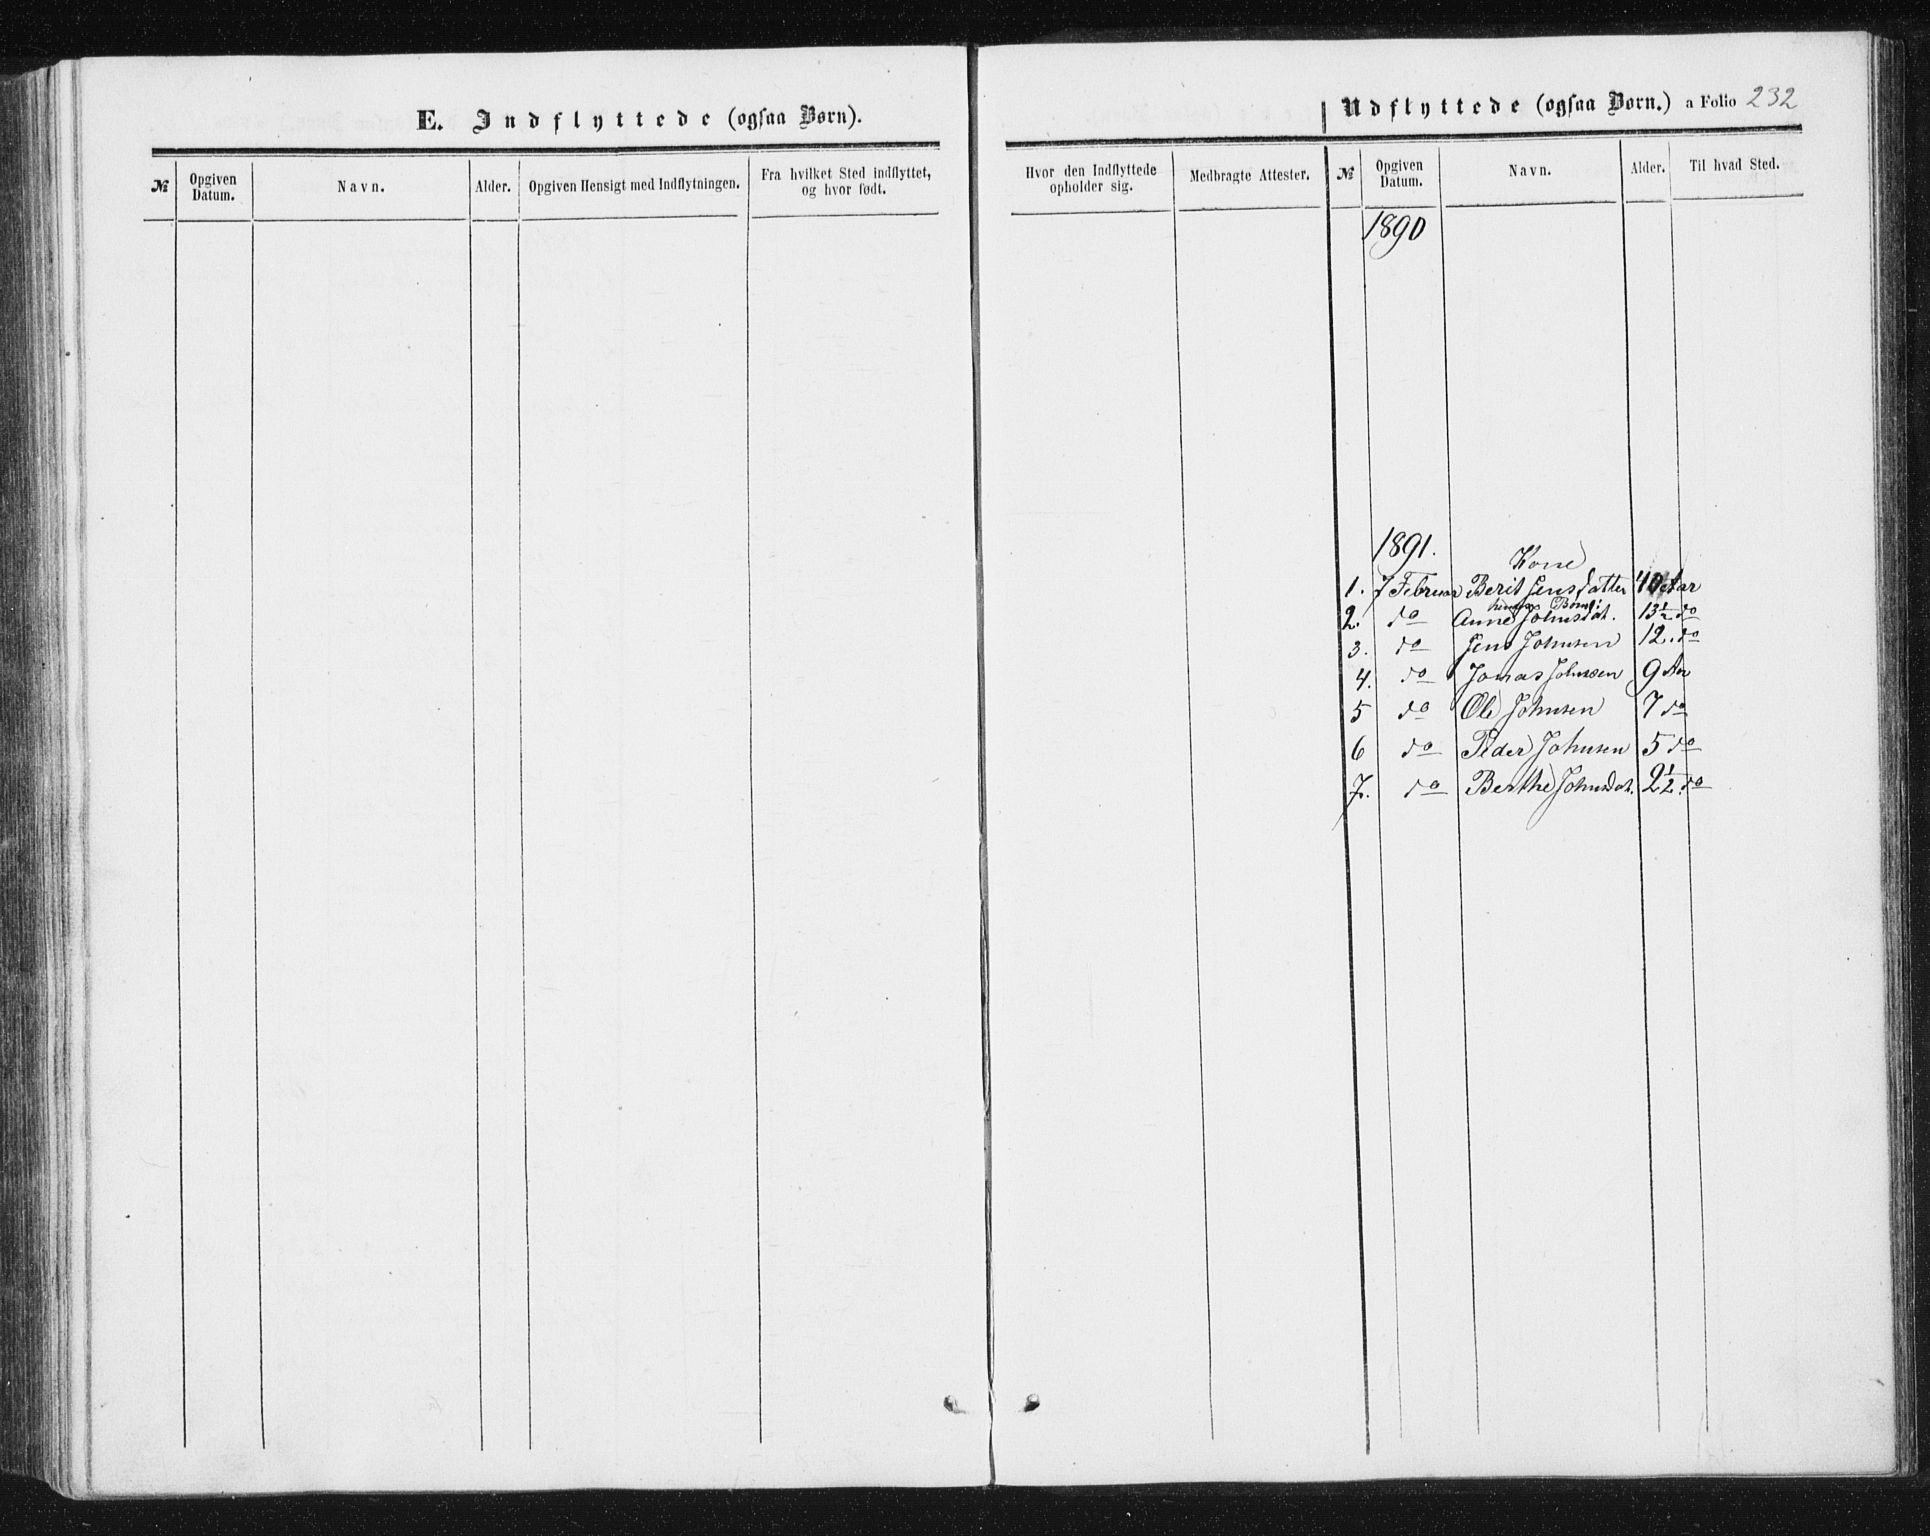 E. Indflyttede (ogsaa Børn).
№ Opgiven Datum. Navn. Alder. Opgiven Hensigt med Indflytningen. Fra hvilket Sted indflyttet, og hvor født.
Udflyttede (ogsaa Børn.) a Folio 232
Hvor den Indflyttede opholder sig. Medbragte Attester. № Opgiven Datum. Navn. Alder. Til hvad Sted.
1890
1891.
Kone
1. 7 Februar Berit Jensdatter 40 Aar
hendes Børn:
2. do Anne Johnsdat. 13½ do
3. do Jens Johnsen 12. do
4. do Jonas Johnsen 9 Aar
5 do Ole Johnsen 7 do
6 do Peder Johnsen 5 do
7. do Berthe Johnsdat. 2½ do